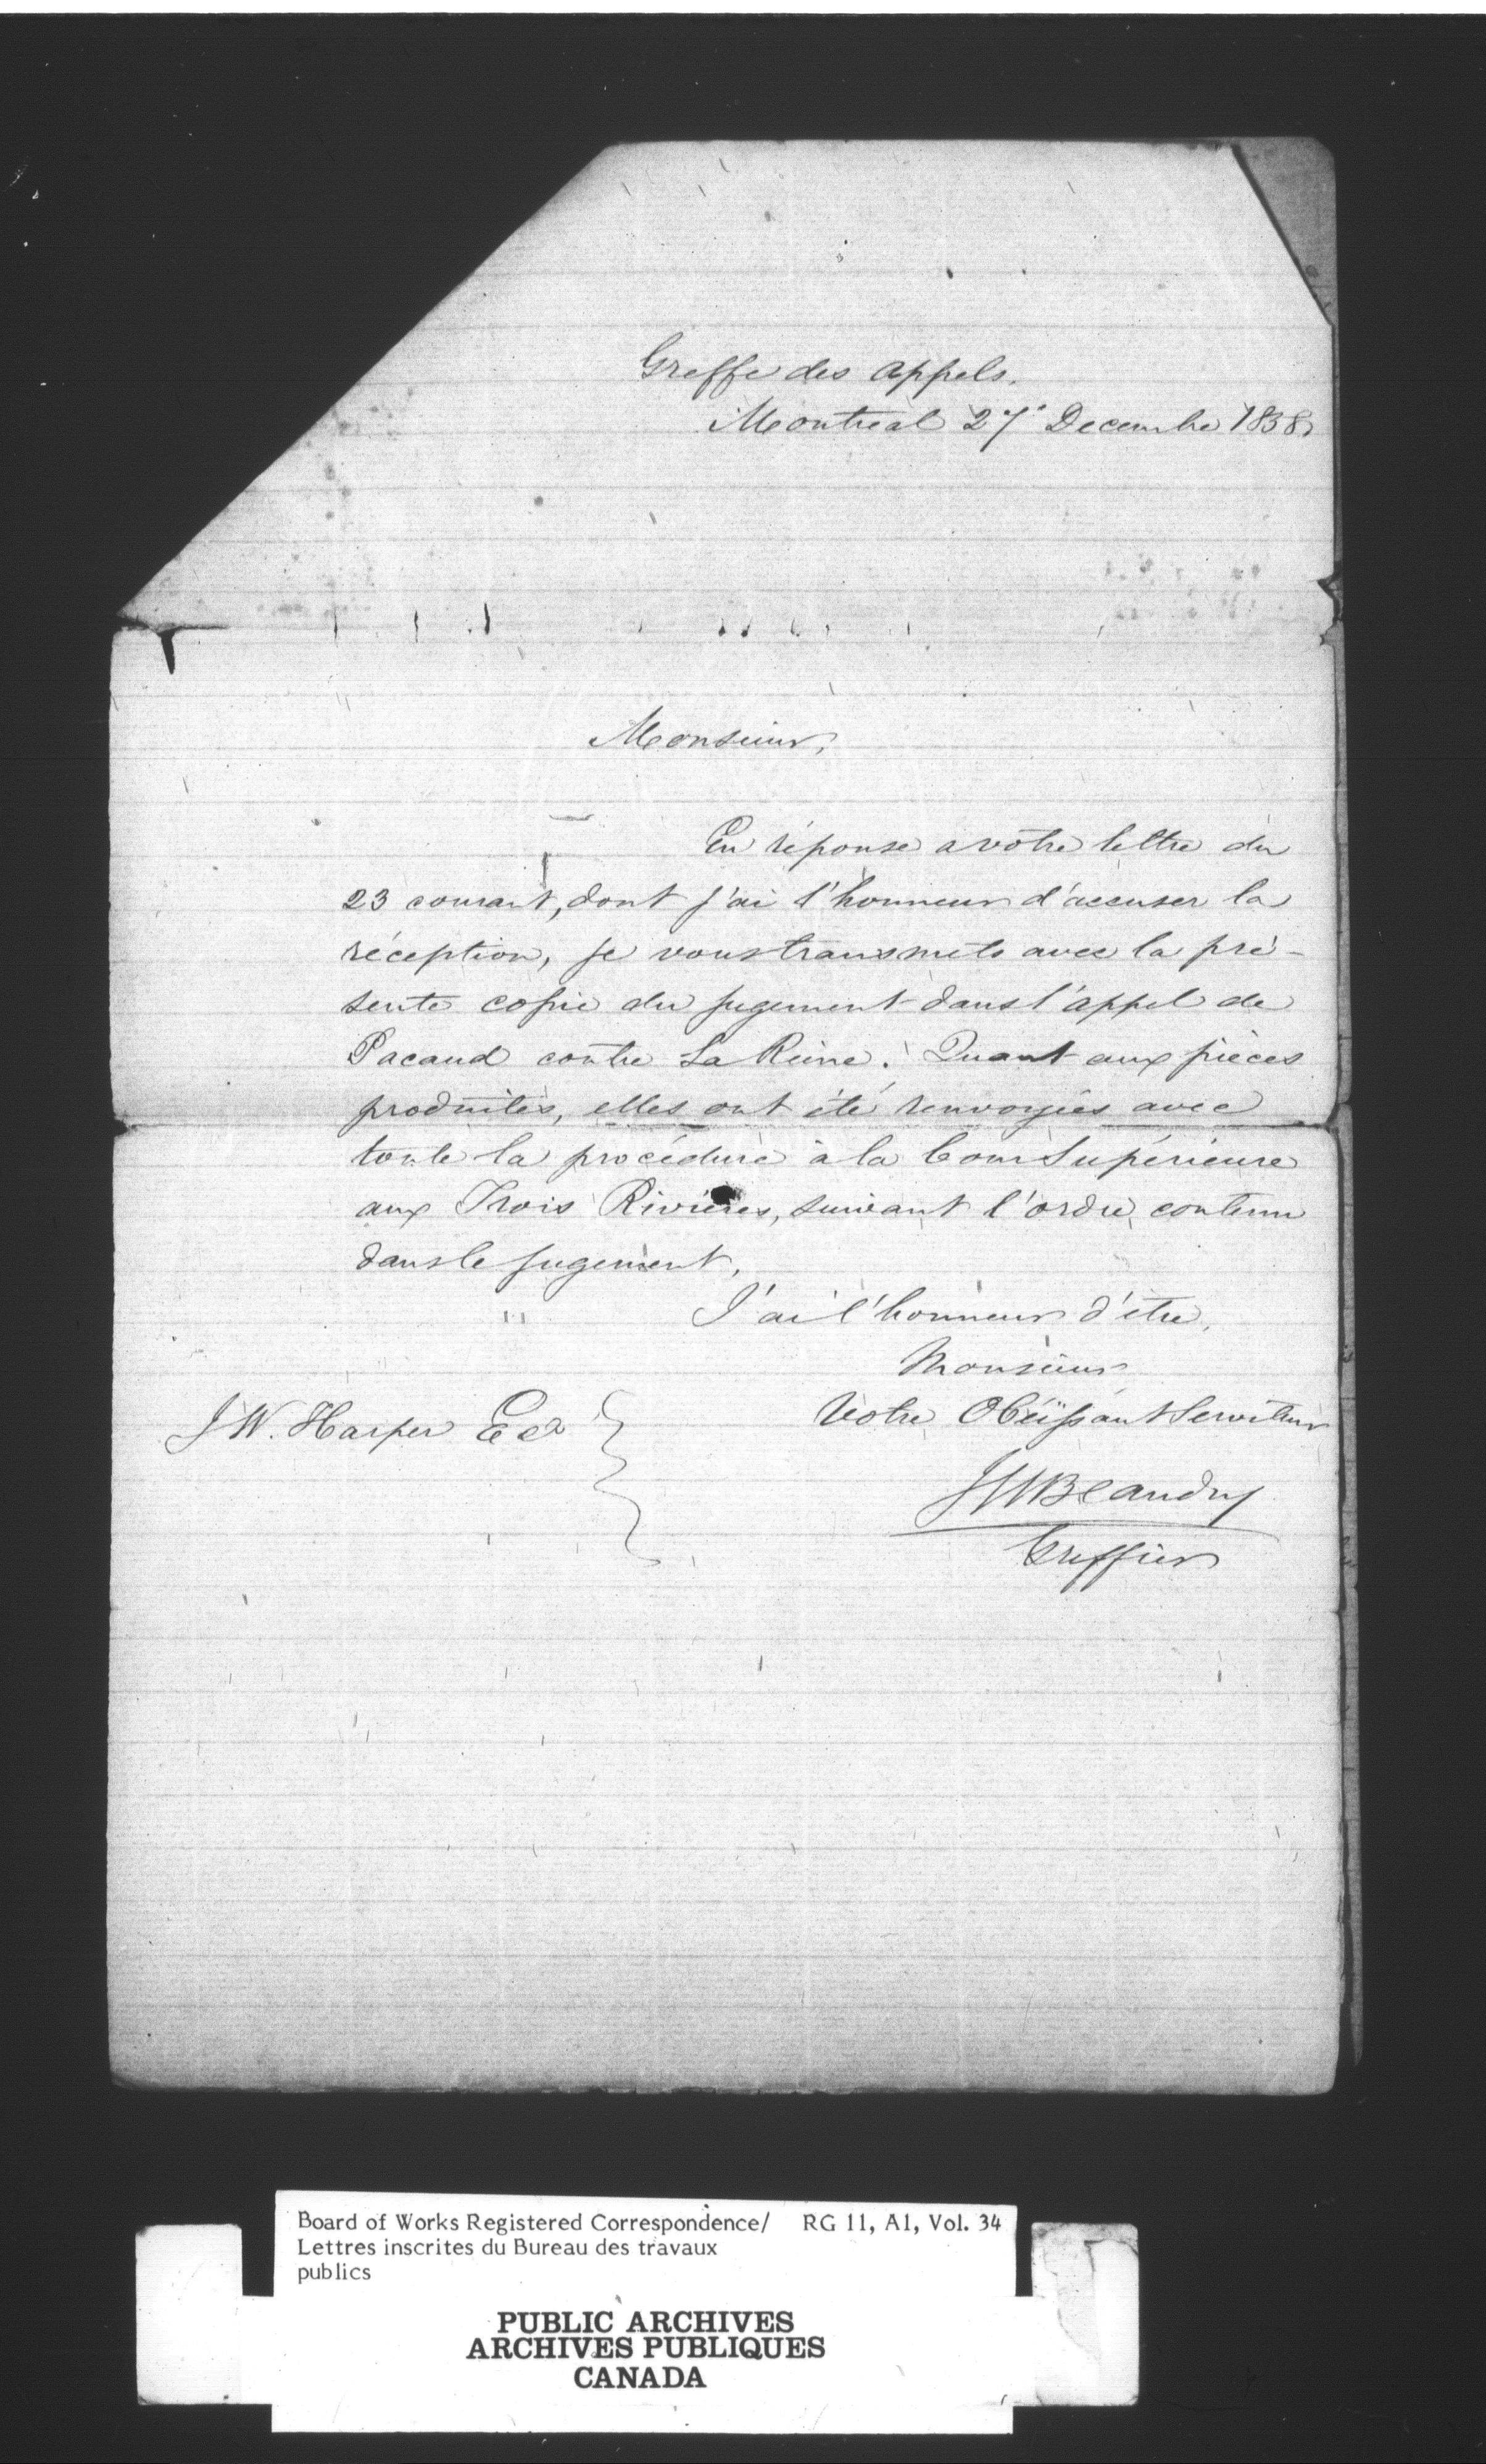 Greffe des appels.
Montreal 27 Decembre 1858
Monsieur,
En réponse a votre lettre du
23 courant, dont j'ai l'honneur d'accuser la
réception, je vous transmets avec la pré-
sente copie du jugement dans l'appel de
Pacaud contre La Reine. Quant aux pièces
produites, elles ont été renvoyées avec
toute la procédure à la Cour Supérieure
aux Trois Rivières, suivant l'ordre contenu
dans le jugement.
J'ai l'honneur d'etre,
Monsieur
Votre Obéissant Serviteur
J W. Harper
Beaudry
Greffier
Board of Works Registered Correspondence/ RG 11, A1, Vol. 34
Lettres inscrites du Bureau des travaux
publics
PUBLIC ARCHIVES
ARCHIVES PUBLIQUES
CANADA